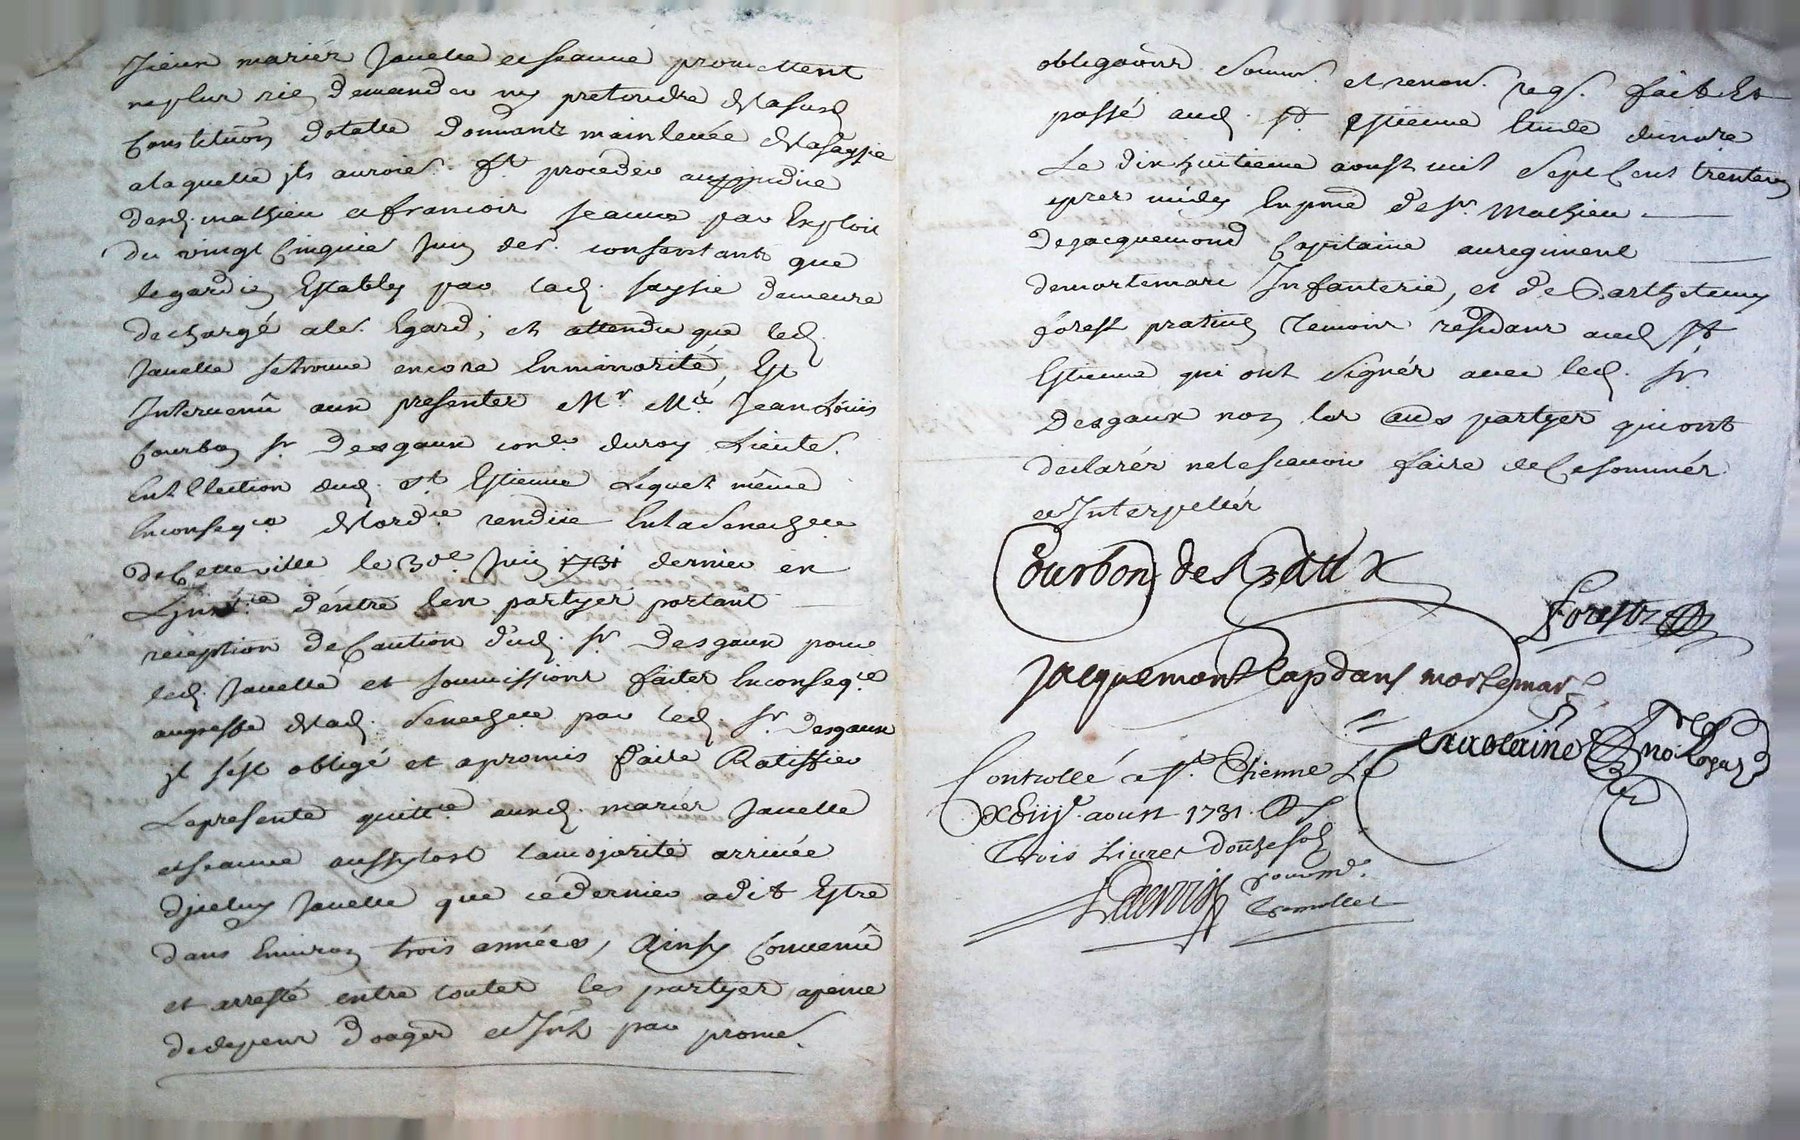 mariés Javelle et Jeanne promettent
ne plus rien demander ny pretendre de lasusd
Constitution dotalle donnant mainlevée de lasaysie
a laquelle ils auroie.t f.t procedér au prejudice
desd. mathieu et francois Jeanne par Exploit
du vingt Cinquie.e Juin der. consentant que
le gardien Estably par lad. saysie demeure
dechargé a cet Egard; et attendu que led.
Javelle se trouve encore En minorité, Est
Intervenû aux presentes Mr Me Jean Loüis
Courbon sr. Desgaux con.er du roy Lieute.
En l'Election dud. st. Estienne Lequel même
En conseq.ce de l'ord.ce rendüe En la Senech.ée
de Cette ville le 30.e Juin 1731 dernier en
d'entre les partyes portant
réception de Caution dud. sr. Desgaux pour
led. Javelle et soumissions faites En conseq.ce
au greffe de lad. Senech.ée par led. sr. Desgaux
il s'est obligé et a promis faire Ratiffier
La presente quitt.ce auxd. mariés Javelle
et Jeanne aussytost la majorité arrivée
d'jceluy Javelle que ce dernier a dit Estre
dans Environ trois années, Ainsy Convenû
et arresté entre toutes les partyes a peine
de depens domages et Int. par prome.
obligaōns soum. et renon. reqs. fait Et
passé aud. st. Estienne Etude du no.re
Le dix huitieme aoust mil Sept Cent trente un
apres midy En pnce de sr. Mathieu
De jacquemond Capitaine au regiment
de mortemart Infanterie, et de Barthelemy
forest praticien temoins résidans aud. st
Estienne qui ont signés avec led. sr.
Desgaux non les aus partyes qui ont
declarés ne le scavoir faire de Ce sommés
et Interpellés
Courbon desgaux
forest
jacquemont Cap dans mortemart
no. Royal
Controllé a st. Etienne Le
Xviij.e aoust 1731. R
trois Livres douze sols